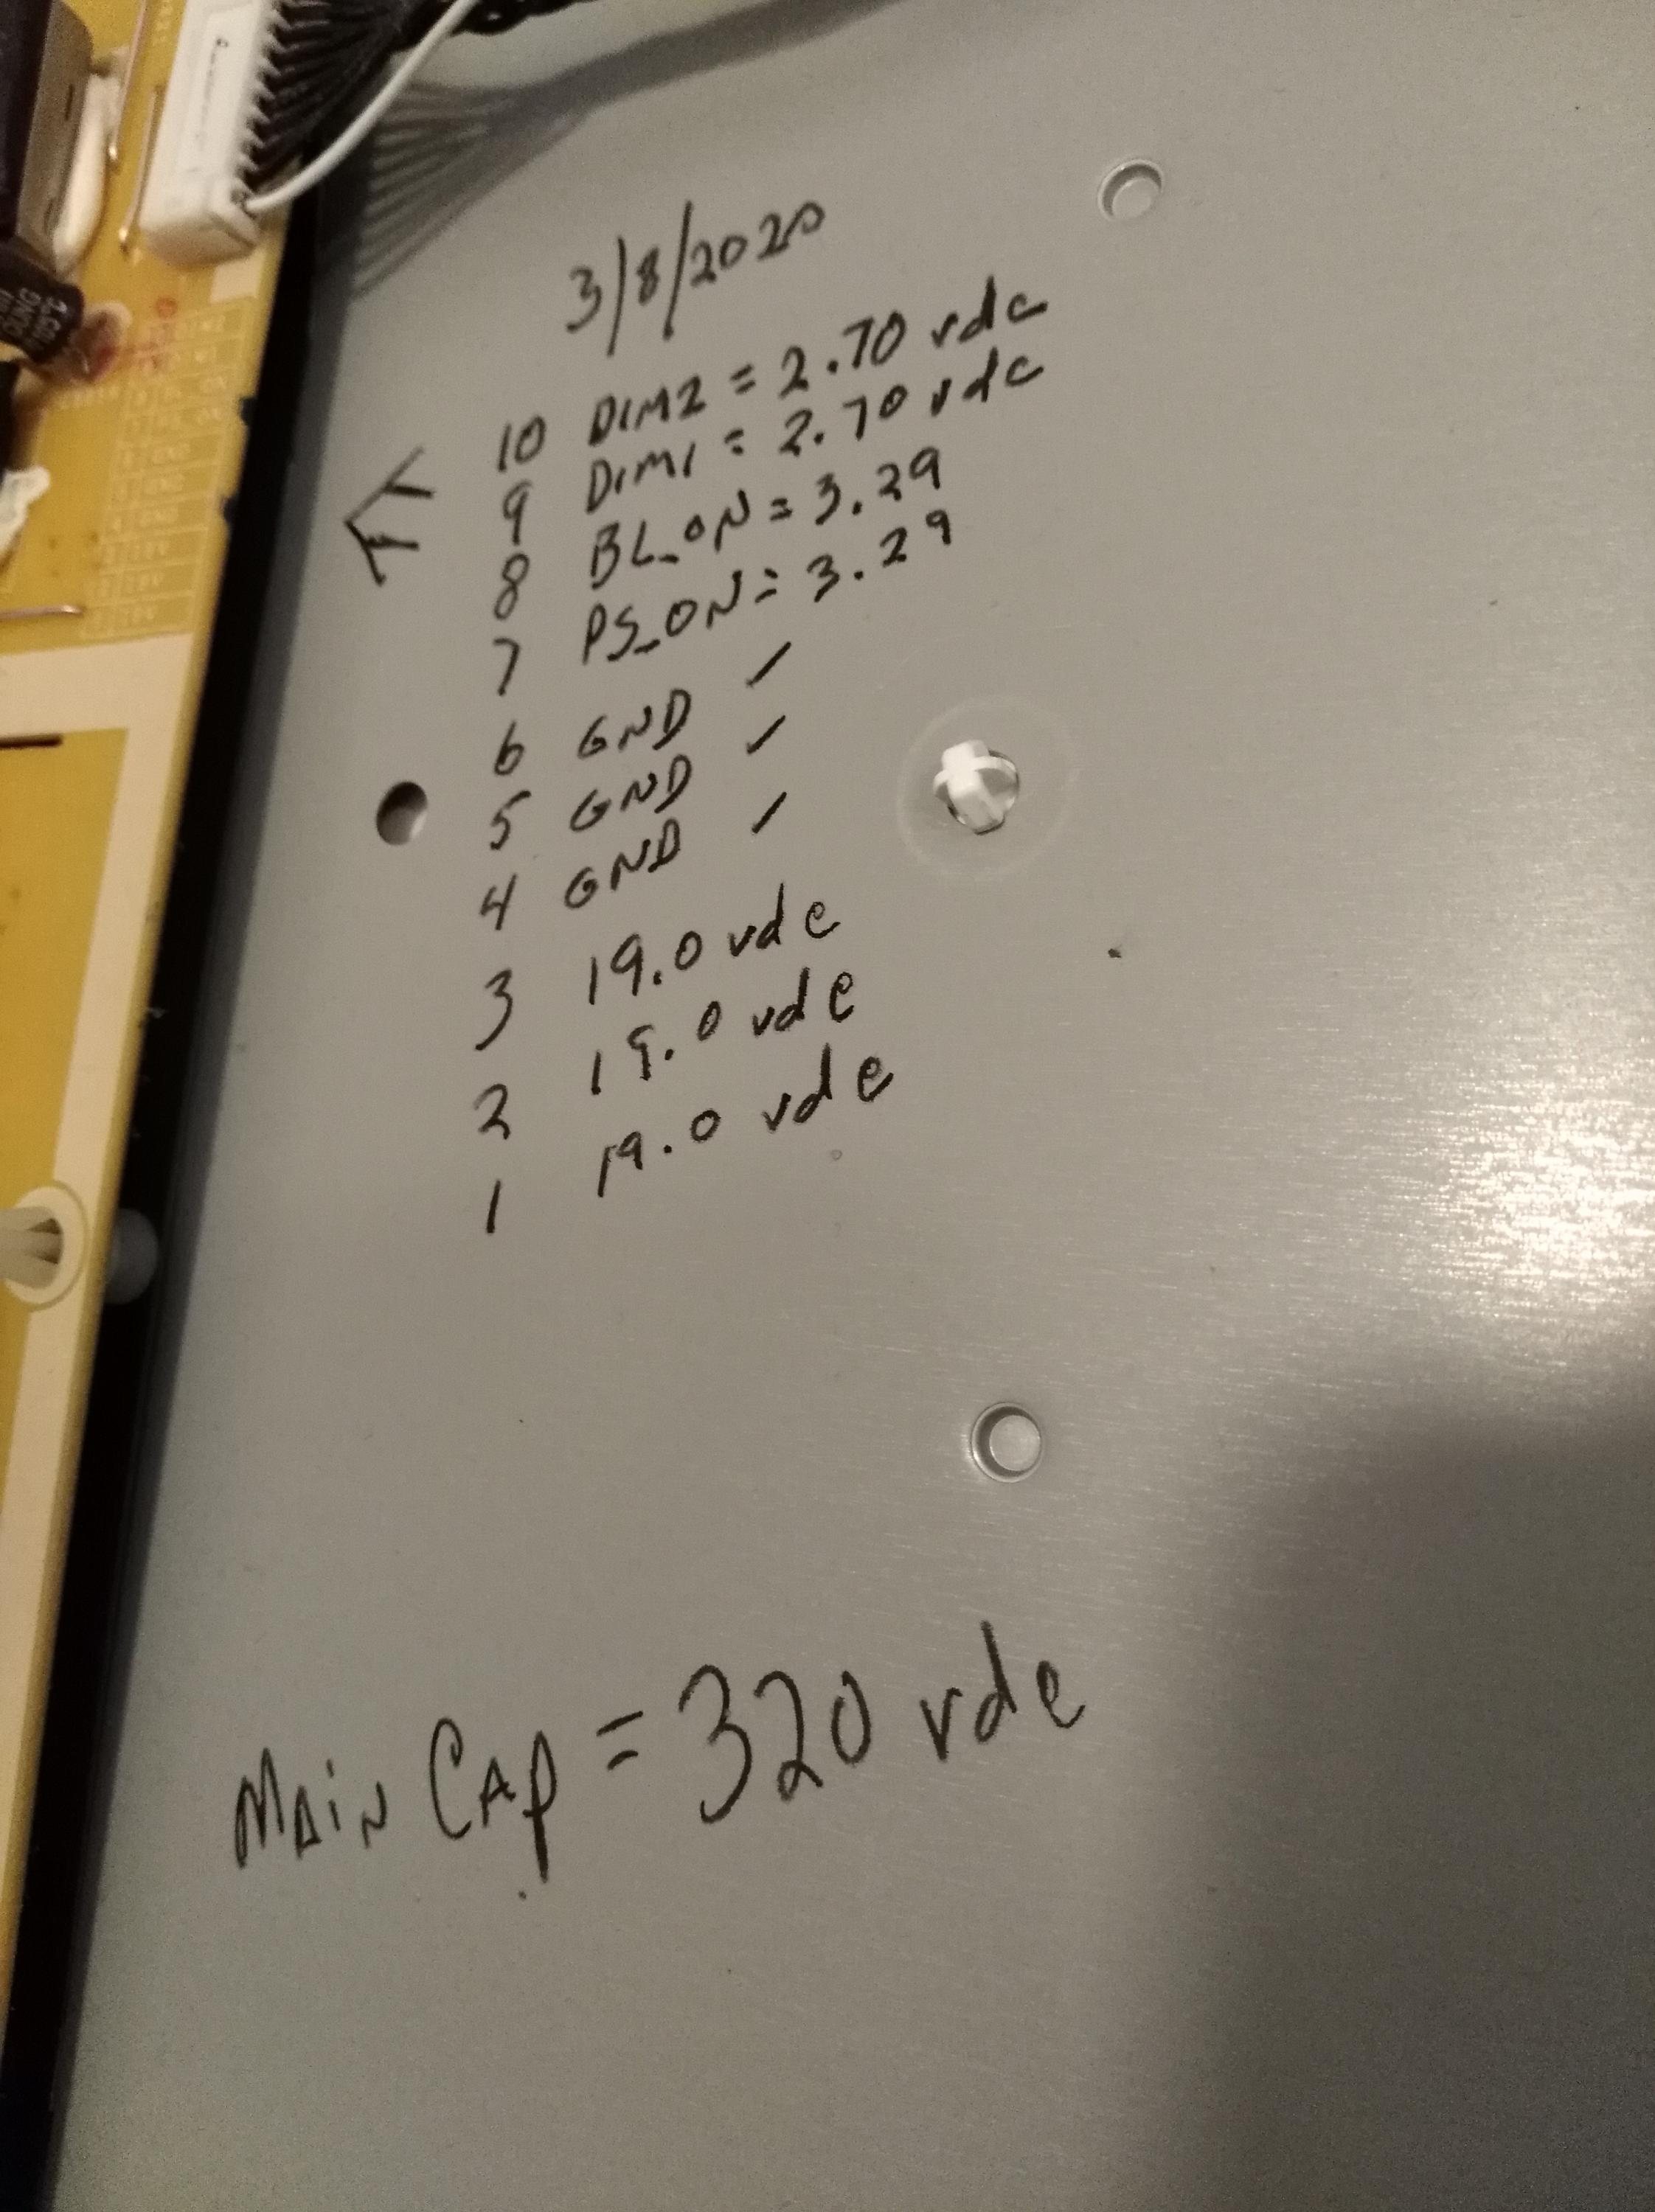 3/8/2020
10 DIM2 = 2.70 vdc
9 DIM1 = 2.70 vdc
8 BL_ON = 3.29
7 PS_ON = 3.29
6 GND ✓
5 GND ✓
4 GND ✓
3 19.0 vdc
2 19.0 vdc
1 19.0 vdc
MAiN CAp = 320 vdc